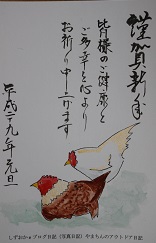 謹賀新年
皆様のご健康と
ご多幸を心より
お祈り申し上げます
平成二九年 元旦
しずおかeブログ日記 (写真日記) やまちゃんのアウトドア日記